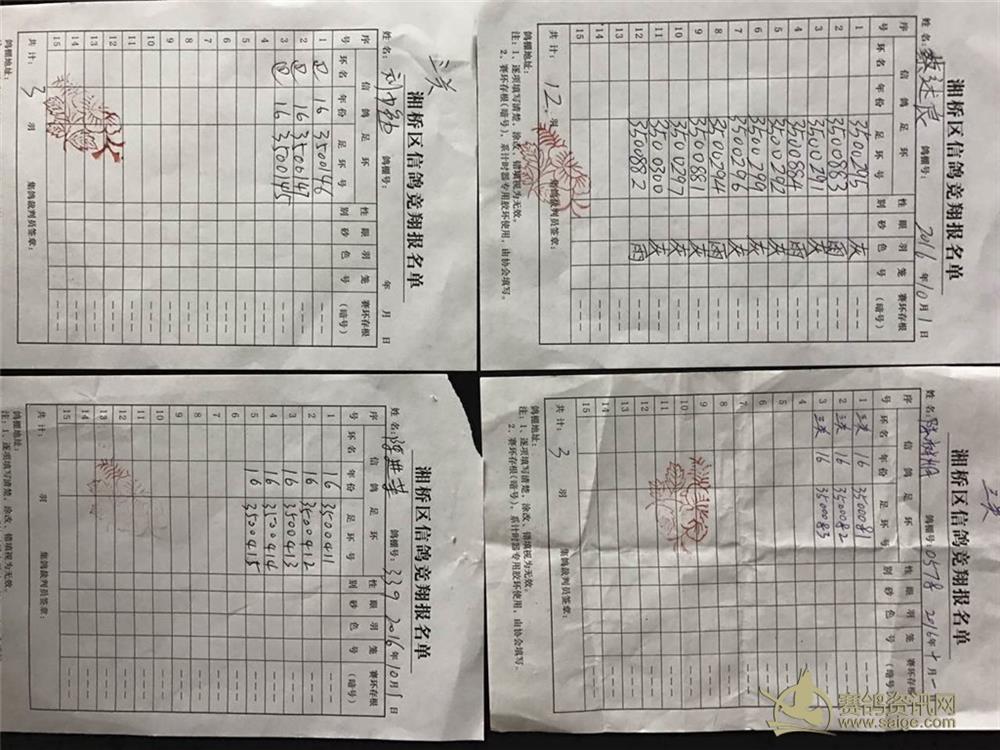 三关
湘桥区信鸽竞翔报名单
姓名: 鸽棚号: 年 月 日
序号 信鸽足环号 性别 眼砂 羽色 笼号 赛环存根(暗号)
环名 年份 足环号
1 16 3500146
2 16 3500147
3 16 3500145
4
5
6
7
8
9
10
11
12
13
14
15
共计: 3 羽 集鸽裁判员签章:
鸽棚地址:
湘桥区信鸽竞翔报名单
姓名: 蔡述良 鸽棚号: 2016年10月1日
序号 信鸽足环号 性别 眼砂 羽色 笼号 赛环存根(暗号)
环名 年份 足环号
1 3500295 灰
2 3500883 雨
3 3500291 灰
4 3500884 雨
5 3500292 灰
6 3500299 灰
7 3500296 灰
8 3500294 雨
9 3500881 雨
10 3500297 灰
11 3500300 灰
12 3500882 雨
13
14
15
共计: 12 羽 集鸽裁判员签章:
鸽棚地址:
注:1、逐项填写清楚,涂改、错填视为无效。
2、赛环存根(暗号),系计时器专用胶环使用,由协会填写。
湘桥区信鸽竞翔报名单
姓名: 鸽棚号: 339 2016年10月1日
序号 信鸽足环号 性别 眼砂 羽色 笼号 赛环存根(暗号)
环名 年份 足环号
1 16 3500411
2 16 3500412
3 16 3500413
4 16 3500414
5 16 3500415
6
7
8
9
10
11
12
13
14
15
共计: 羽 集鸽裁判员签章:
鸽棚地址:
注:1、逐项填写清楚,涂改、错填视为无效。
三关
湘桥区信鸽竞翔报名单
姓名: 鸽棚号: 0578 2016年十月一
序号 信鸽足环号 性别 眼砂 羽色 笼号 赛环存根(暗号)
环名 年份 足环号
1 三关 16 3500081
2 三关 16 3500082
3 三关 16 3500083
4
5
6
7
8
9
10
11
12
13
14
15
共计: 3 羽 集鸽裁判员签章:
鸽棚地址:
注:1、逐项填写清楚,涂改、错填视为无效。
2、赛环存根(暗号),系计时器专用胶环使用,由协会填写。
赛鸽资讯网
www.saige.com